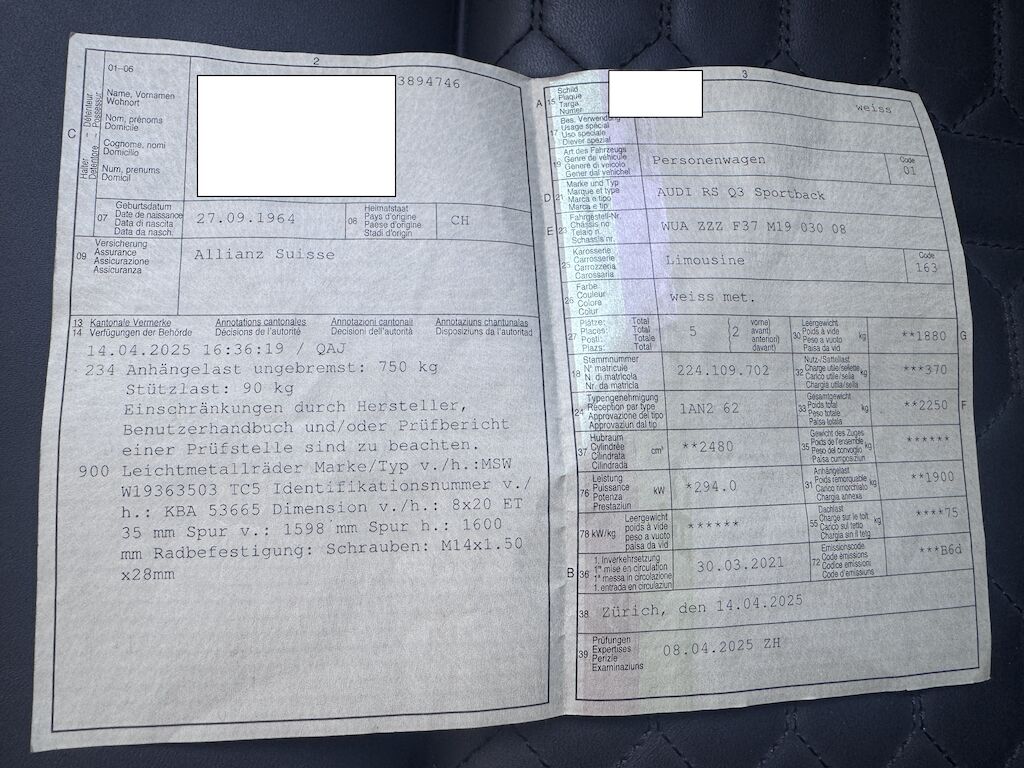 2
01-06
3894746
C
Halter – Détenteur
Detentore – Possessur
Name, Vornamen
Wohnort
Nom, prénoms
Domicile
Cognome, nomi
Domicilio
Num, prenums
Domicil
07
Geburtsdatum
Date de naissance
Data di nascita
Data da nasch.
27.09.1964
08
Heimatstaat
Pays d'origine
Paese d'origine
Stadi d'origin
CH
09
Versicherung
Assurance
Assicurazione
Assicuranza
Allianz Suisse
13 Kantonale Vermerke Annotations cantonales Annotazioni cantonali Annotaziuns chantunalas
14 Verfügungen der Behörde Décisions de l'autorité Decisioni dell'autorità Disposiziuns da l'autoritad
14.04.2025 16:36:19 / QAJ
234 Anhängelast ungebremst: 750 kg
Stützlast: 90 kg
Einschränkungen durch Hersteller,
Benutzerhandbuch und/oder Prüfbericht
einer Prüfstelle sind zu beachten.
900 Leichtmetallräder Marke/Typ v./h.:MSW
W19363503 TC5 Identifikationsnummer v./
h.: KBA 53665 Dimension v./h.: 8x20 ET
35 mm Spur v.: 1598 mm Spur h.: 1600
mm Radbefestigung: Schrauben: M14x1.50
x28mm
3
A
15
Schild
Plaque
Targa
Numer
weiss
17
Bes. Verwendung
Usage spécial
Uso speciale
Diever spezial
19
Art des Fahrzeugs
Genre de véhicule
Genere di veicolo
Gener dal vehichel
Personenwagen
Code
01
D
21
Marke und Typ
Marque et type
Marca e tipo
Marca e tip
AUDI RS Q3 Sportback
E
23
Fahrgestell-Nr.
Châssis no
Telaio n.
Schassis nr.
WUA ZZZ F37 M19 030 08
25
Karosserie
Carrosserie
Carrozzeria
Carossaria
Limousine
Code
163
26
Farbe
Couleur
Colore
Colur
weiss met.
27
Plätze: Total
Places: Total
Posti: Totale
Plazs: Total
5
2
vorne)
avant)
anteriori)
davant)
30
Leergewicht
Poids à vide
Peso a vuoto
Paisa da vid
kg
**1880
G
18
Stammnummer
N° matricule
N. di matricola
Nr. da matricla
224.109.702
32
Nutz-/Sattellast
Charge utile/sellette
Carico utile/sella
Chargia utila/sella
kg
***370
24
Typengenehmigung
Réception par type
Approvazione del tipo
Approvaziun dal tip
1AN2 62
33
Gesamtgewicht
Poids total
Peso totale
Paisa totala
kg
**2250
F
37
Hubraum
Cylindrée
Cilindrata
Cilindrada
cm³
**2480
35
Gewicht des Zuges
Poids de l'ensemble
Peso del convoglio
Paisa cumposiziun
kg
******
76
Leistung
Puissance
Potenza
Prestaziun
kW
*294.0
31
Anhängelast
Poids remorquable
Carico rimorchiato
Chargia annexa
kg
**1900
78 kW/kg
Leergewicht
poids à vide
peso a vuoto
paisa da vid
******
55
Dachlast
Charge sur le toit
Carico sul tetto
Chargia sin il tetg
kg
****75
B
36
1. Inverkehrsetzung
1re mise en circulation
1a messa in circolazione
1. entrada en circulaziun
30.03.2021
72
Emissionscode
Code émissions
Codice emissioni
Code d'emissiuns
***B6d
38
Zürich, den 14.04.2025
39
Prüfungen
Expertises
Perizie
Examinaziuns
08.04.2025 ZH